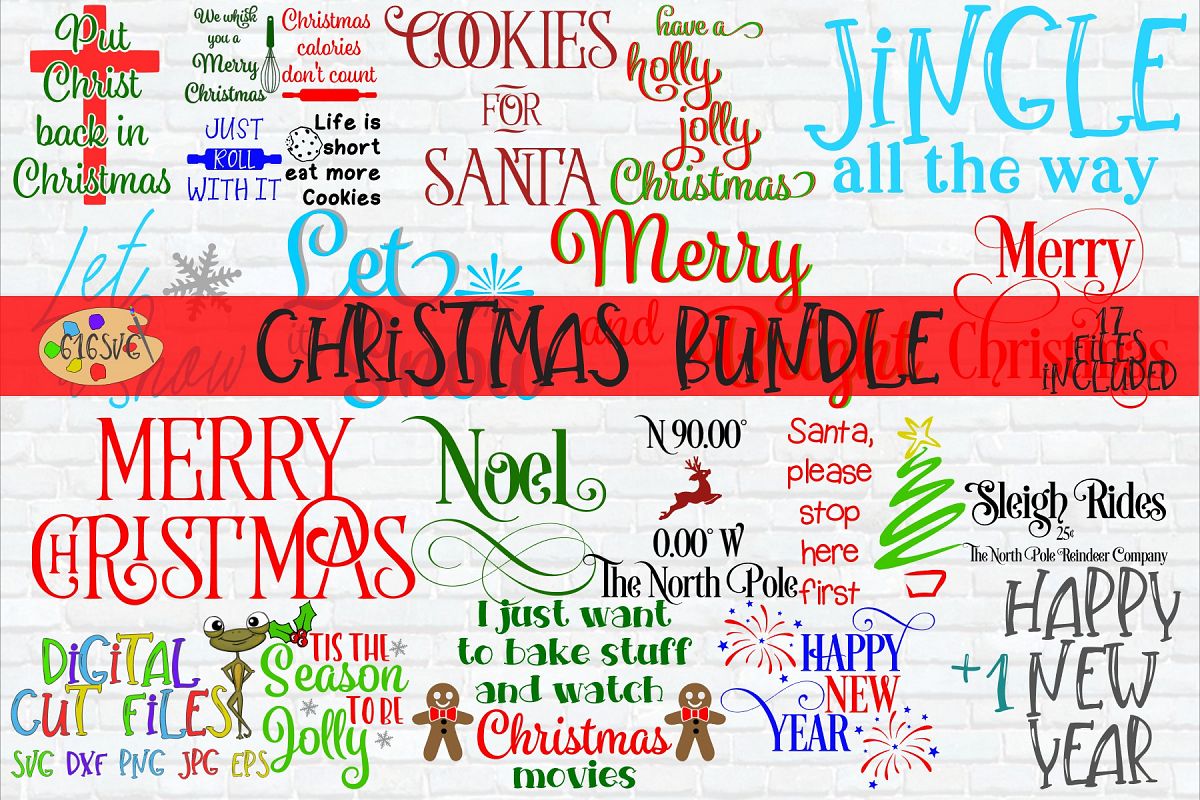 Put
Christ
back in
Christmas
We whisk
you a
Merry
Christmas
Christmas
calories
don't count
JUST
ROLL
WITH IT
Life is
short
eat more
Cookies
COOKIES
FOR
SANTA
have a
holly
jolly
Christmas
JiNGLE
all the way
Let
it
Snow
Let
it
Snow
Merry
and
Bright
Merry
Christmas
616SVG
CHRiSTMAS BUNDLE
17
FiLES
iNCLUDED
MERRY
CHRISTMAS
Noel
N 90.00°
0.00° W
The North Pole
Santa,
please
stop
here
first
Sleigh Rides
25¢
The North Pole Reindeer Company
DiGiTAL
CUT FiLES
SVG DXF PNG JPG EPS
'TIS THE
Season
TO BE
Jolly
I just want
to bake stuff
and watch
Christmas
movies
HAPPY
NEW
YEAR
HAPPY
+1 NEW
YEAR